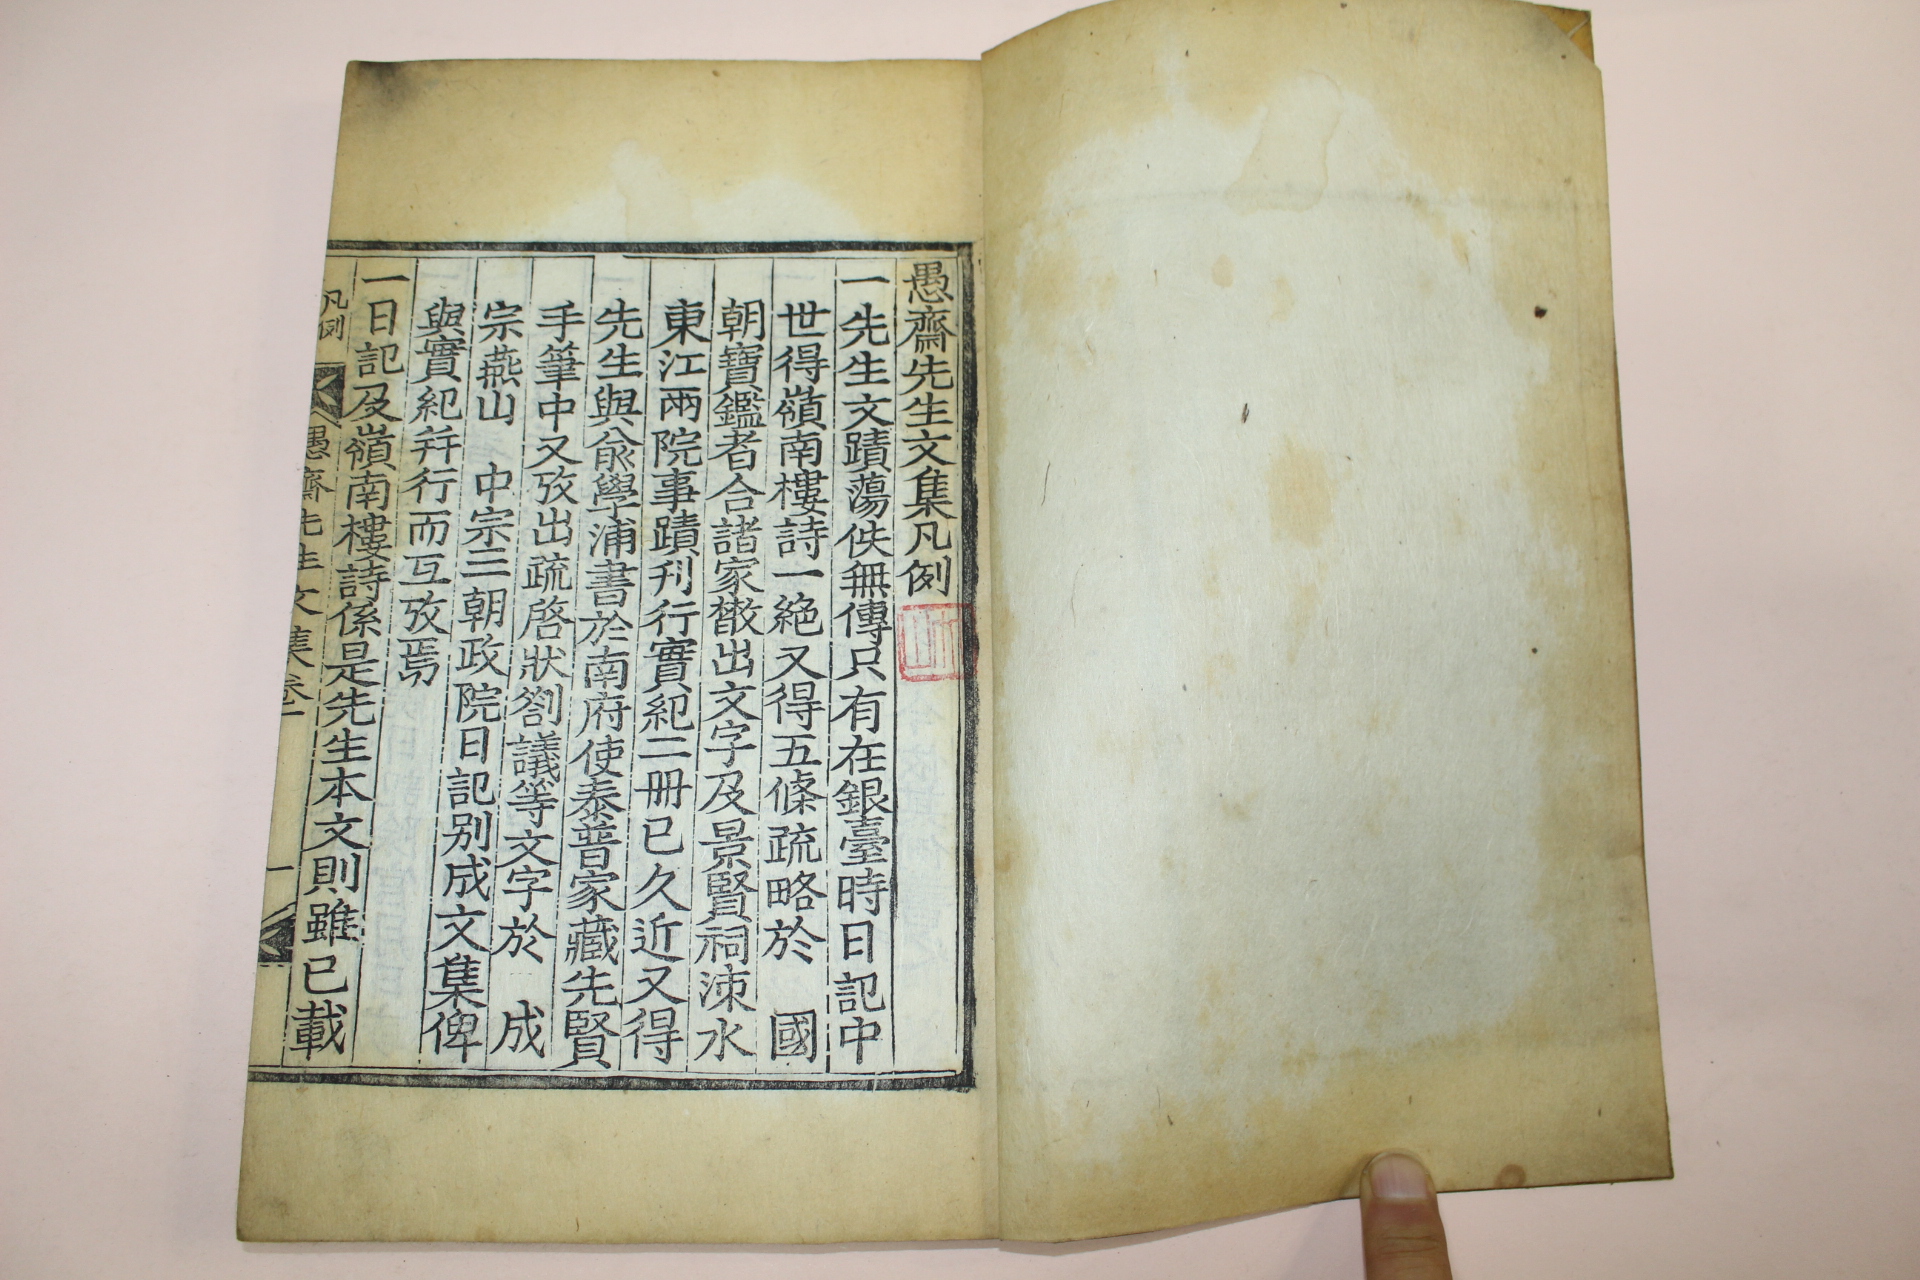 愚齋先生文集凡例
一先生文蹟蕩佚無傳只有在銀臺時日記中
世得嶺南樓詩一絶又得五條疏略於 國
朝寶鑑者合諸家散出文字及景賢祠涑水
東江兩院事蹟刋行實紀二冊已久近又得
先生與兪學浦書於南府使泰普家藏先賢
手筆中又攷出疏啓狀劄議等文字於 成
宗燕山 中宗三朝政院日記别成文集俾
與實紀幷行而互攷焉
一日記及嶺南樓詩係是先生本文則雖已載
凡例 愚齋先生文集卷一 一